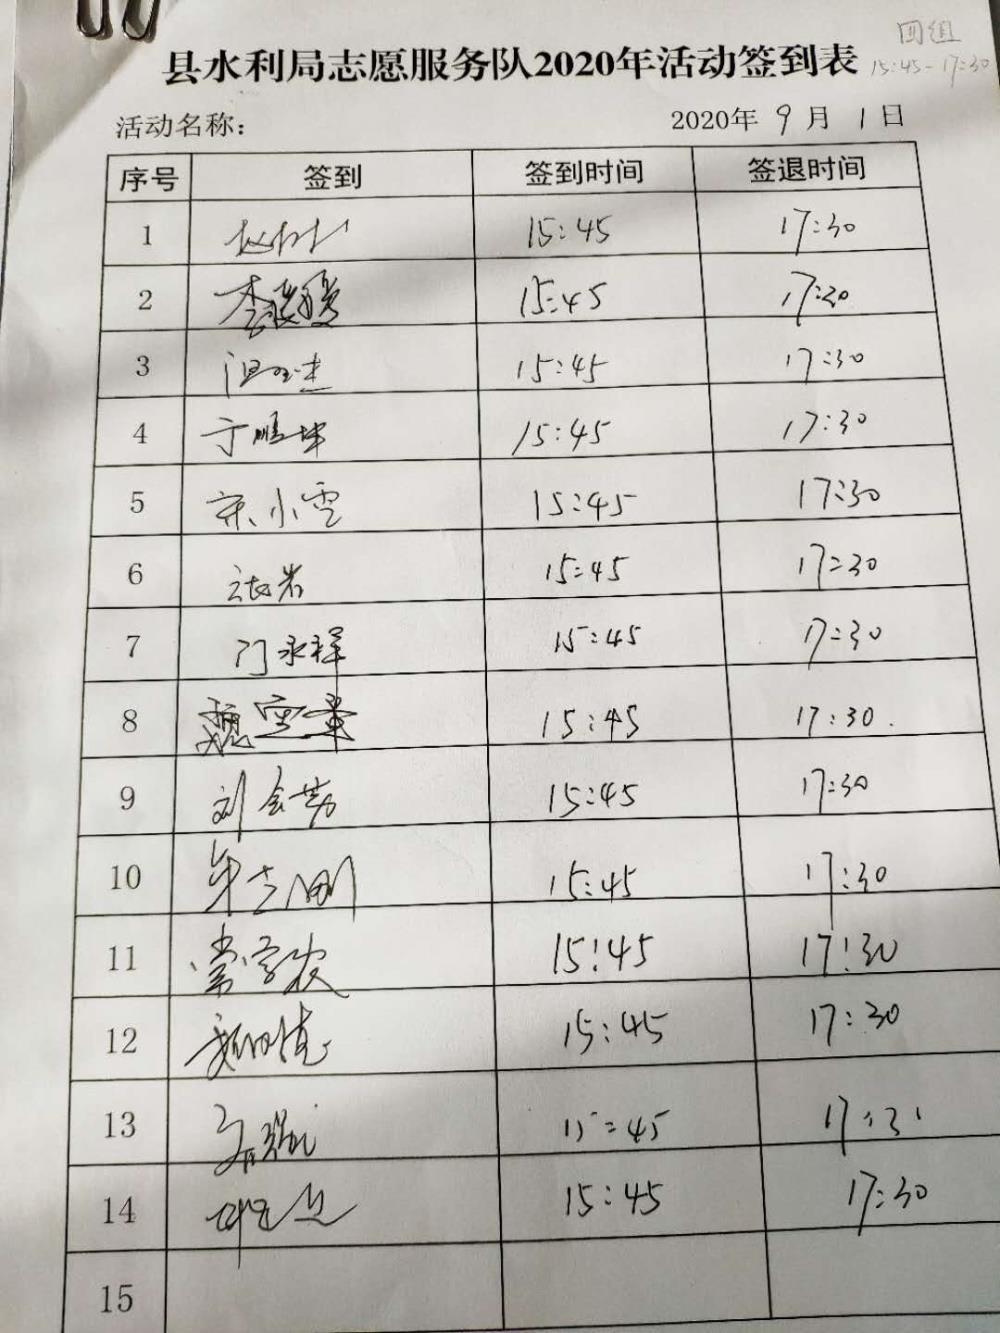 四组
15:45-17:30
县水利局志愿服务队2020年活动签到表
活动名称： 2020年 9 月 1 日
序号 签到 签到时间 签退时间
1 15:45 17:30
2 15:45 17:30
3 15:45 17:30
4 于鹏坤 15:45 17:30
5 宋小雪 15:45 17:30
6 15:45 17:30
7 门永祥 15:45 17:30
8 魏雪景 15:45 17:30.
9 刘会芬 15:45 17:30
10 15:45 17:30
11 常学农 15:45 17:30
12 15:45 17:30
13 15:45
14 15:45 17:30
15